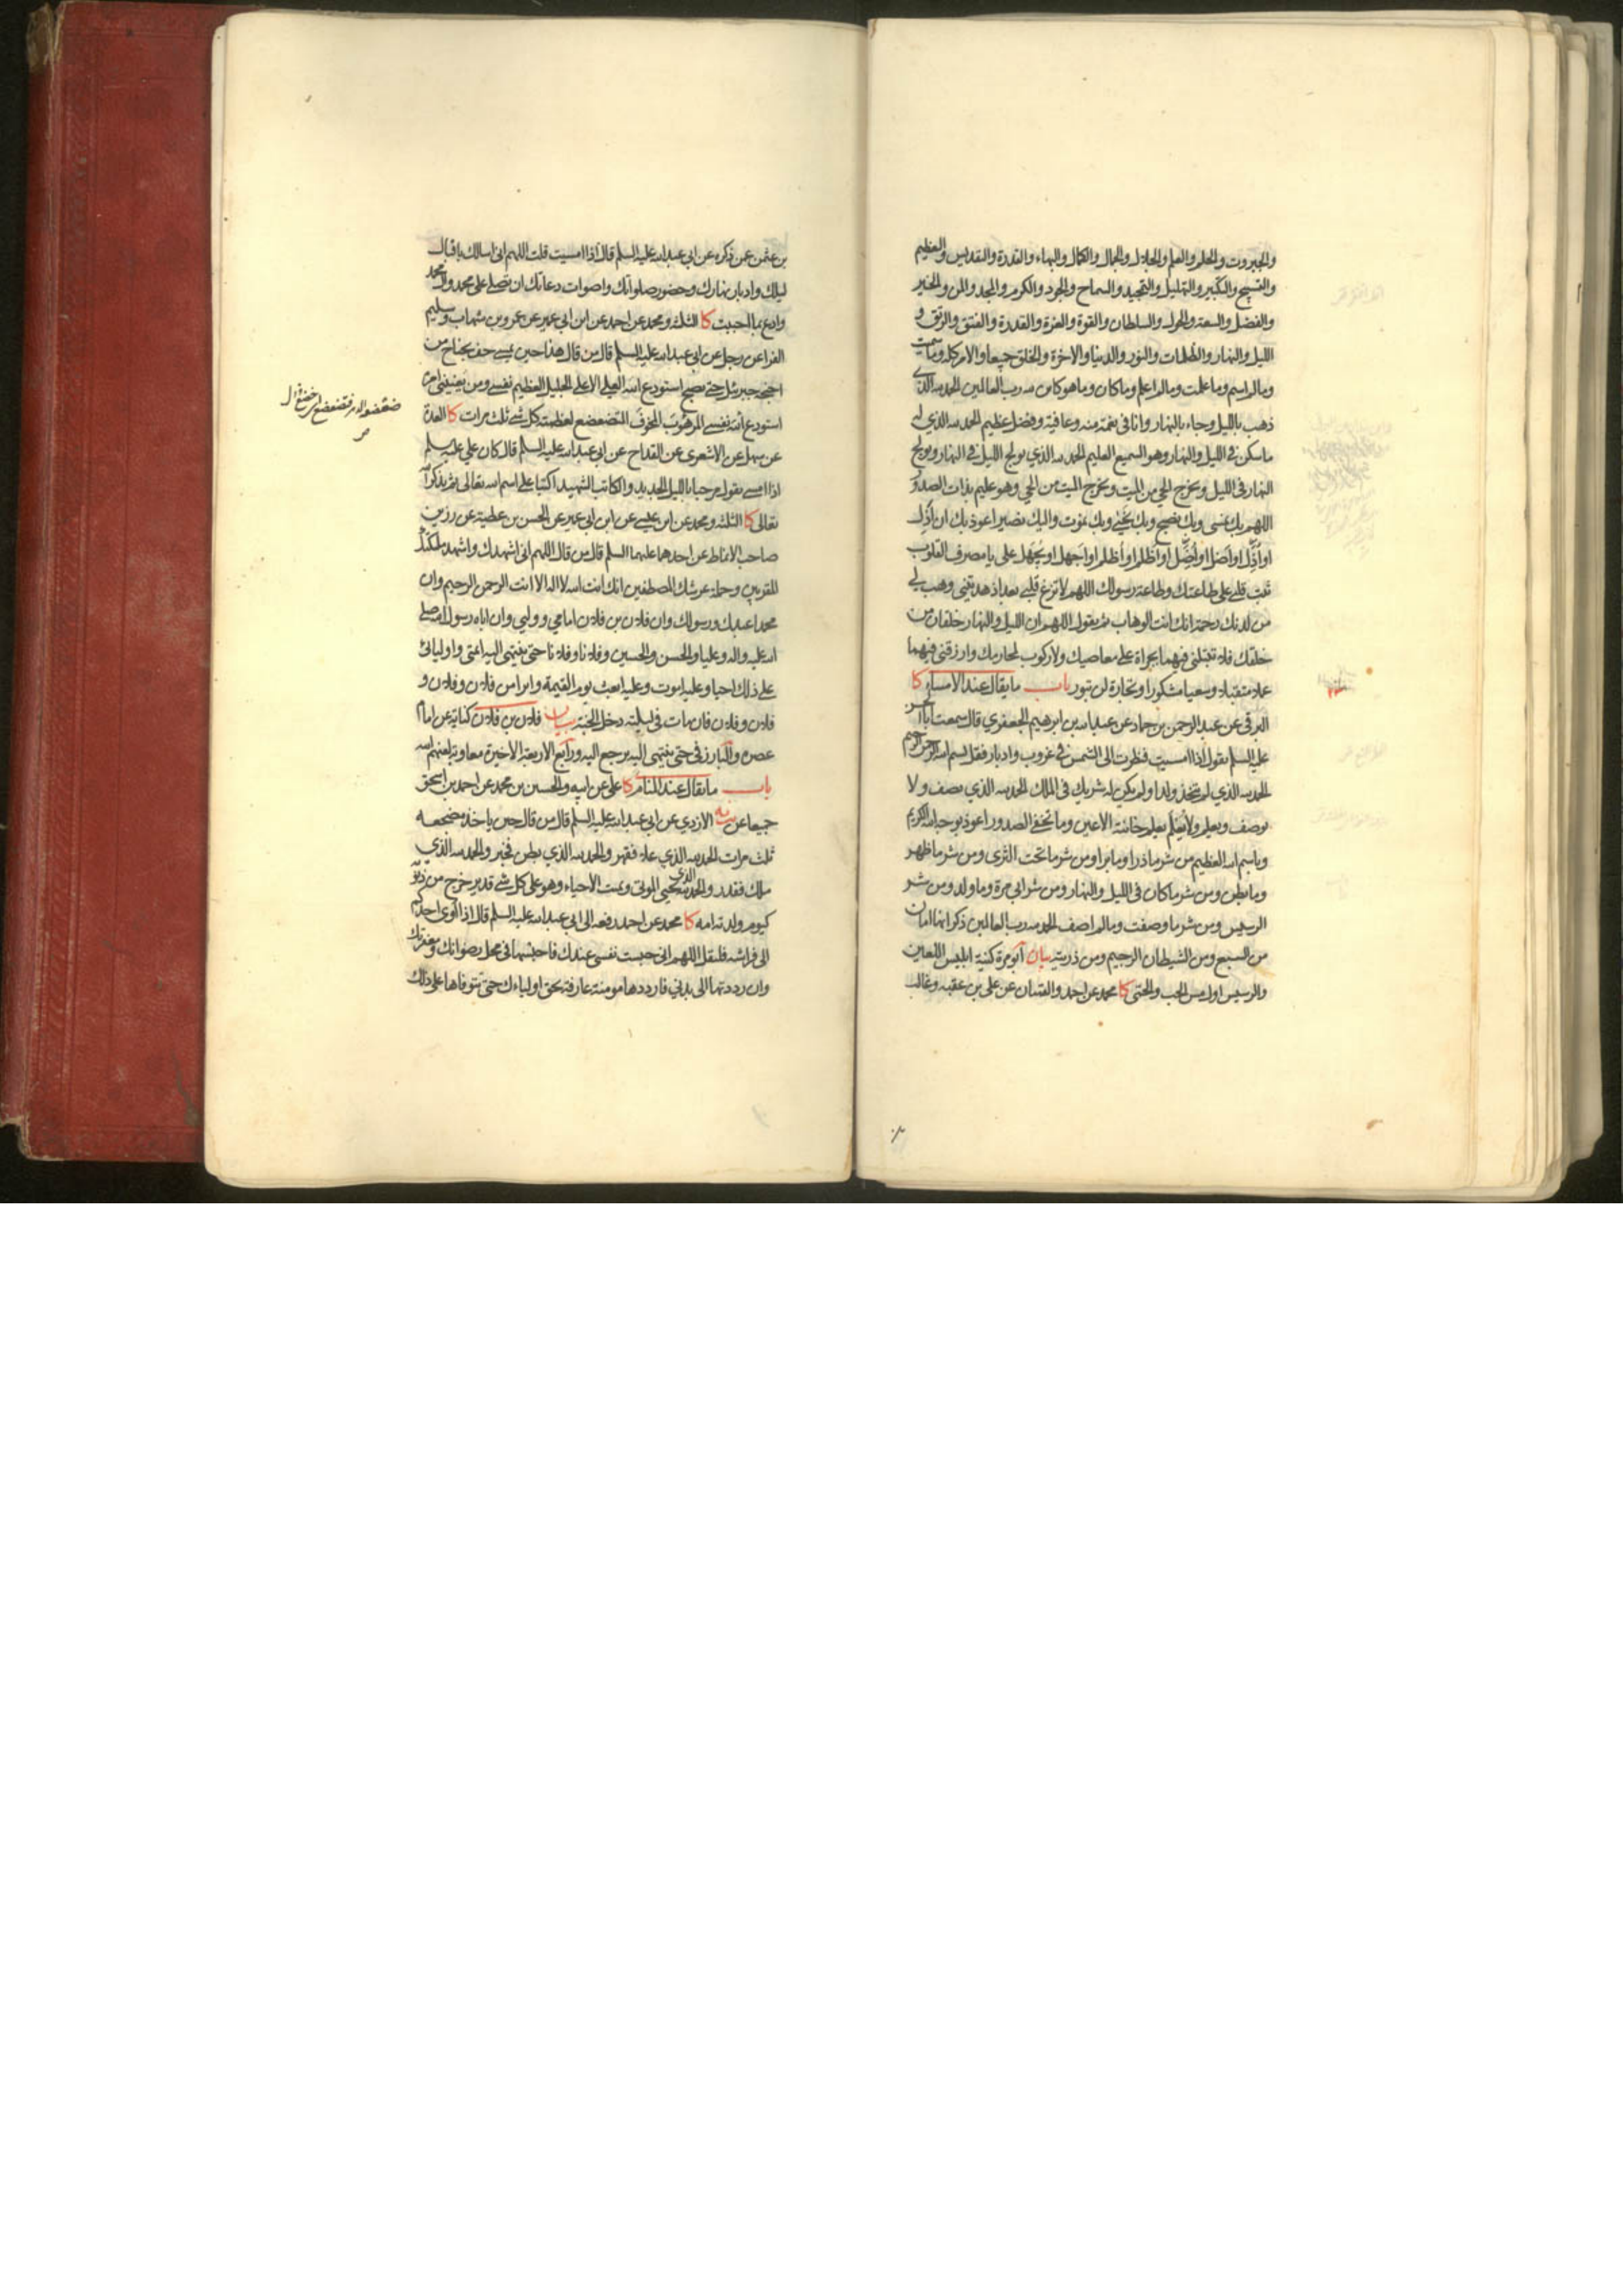 والجبروت والحلم والعلم والجلال والجمال والكمال والبهاء والقدرة والتقديس والتعظيم
والتسبيح والتكبير والتهليل والتمجيد والسماح والجود والكرم والمجد والمن والخير
والفضل والسعة والحول والسلطان والقوة والعزة والقدرة والفتق والرتق و
الليل والنهار والظلمات والنور والدنيا والاخرة والخلق جميعا والامر كله وما سميت
وما لم اسم وما علمت وما لم اعلم وما كان وما هو كاين لله رب العالمين الحمد لله الذي
ذهب بالليل وجاء بالنهار وانا في نعمة منه وعافية وفضل عظيم الحمد لله الذي له
ما سكن في الليل والنهار وهو السميع العليم الحمد لله الذي يولج الليل في النهار ويولج
النهار في الليل ويخرج الحي من الميت ويخرج الميت من الحي وهو عليم بذات الصدور
اللهم بك نمسي وبك نصبح وبك نحيي وبك نموت واليك نصير اعوذ بك ان اذل
او اُذل او اَضل او اُضل او اَظلم او اُظلم او اجهل او يُجهل علي يا مصرف القلوب
ثبت قلبي على طاعتك وطاعة رسولك اللهم لا تزغ قلبي بعد اذ هديتني وهب لي
من لدنك رحمة انك انت الوهاب ثم يقول اللهم ان الليل والنهار خلقان من
خلقك فلا تبتلني فيهما بجراة على معاصيك ولا ركوب لمحارمك وارزقني فيهما
عملا متقبلا وسعيا مشكورا وتجارة لن تبور باب ما يقال عند الامساء كا
البرقي عن عبد الرحمن بن حماد عن عبد الله بن ابرهيم الجعفري قال سمعت ابا الحسن
عليه السلم يقول اذا امسيت فنظرت الى الشمس في غروب وادبار فقل بسم الله الرحمن الرحيم
الحمد لله الذي لم يتخذ ولدا ولم يكن له شريك في الملك الحمد لله الذي يصف ولا
يوصف ويعلم ولا يُعلم يعلم خائنة الاعين وما تخفي الصدور اعوذ بوجه الله الكريم
وباسم الله العظيم من شر ما ذرا وما برا ومن شر ما تحت الثرى ومن شر ما ظهر
وما بطن ومن شر ما كان في الليل والنهار ومن شر ابي مرة وما ولد ومن شر
الرسيس ومن شر ما وصفت وما لم اصف الحمد لله رب العالمين ذكر انها امان
من السبع ومن الشيطان الرجيم ومن ذريته بيان ابو مرة كنية ابليس اللعين
والرسيس اول مس الحب والحمى كا محمد عن احمد والقميان عن علي بن عقبه وغالب
بن عثمن عمن ذكره عن ابي عبد الله عليه السلم قال اذا امسيت قلت اللهم اني اسالك باقبال
ليلك وادبار نهارك وحضور صلواتك واصوات دعاتك ان تصلي على محمد وال محمد
وادع بما احببت كا الثلثه ومحمد عن احمد عن ابن ابي عمير عن عمرو بن شهاب وسليم
الفرا عن رجل عن ابي عبد الله عليه السلم قال من قال هذا حين يمسي حف بجناح من
اجنحة جبرئيل حتى يصبح استودع الله العلي الاعلى الجليل العظيم نفسي ومن يعنيني امره
استودع الله نفسي المرهوب المخوف المتضعضع لعظمته كل شي ثلث مرات كا العدة
عن سهل عن الاشعرى عن القداح عن ابي عبد الله عليه السلم قال كان علي عليه سلم
اذا امسى يقول مرحبا بالليل الجديد والكاتب الشهيد اكتبا على اسم الله تعالى ثم يذكر الله
تعالى كا الثلثه ومحمد عن ابن عيسى عن ابن ابي عمير عن الحسن بن عطية عن رزين
صاحب الانماط عن احدهما عليهما السلم قال من قال اللهم اني اشهدك واشهد ملئكتك
المقربين وحملة عرشك المصطفين انك انت الله لا اله الا انت الرحمن الرحيم وان
محمدا عبدك ورسولك وان فلان بن فلان امامي وولي وان اباه رسول الله صلى
الله عليه واله وعليا والحسن والحسين وفلانا وفلانا حتى ينتهي اليه ائمتي واوليائى
على ذلك احيا وعليه اموت وعليه ابعث يوم القيمة وابرا من فلان وفلان و
فلان وفلان فان مات في ليلته دخل الجنة بيان فلان بن فلان كناية عن امام
عصره والبارز في حتى ينتهي اليه يرجع اليه ورابع الاربعة الاخيرة معاوية لعنهم الله
باب ما يقال عند المنام كا علي عن ابيه والحسين بن محمد عن احمد بن اسحق
جميعا عن الازدي عن ابي عبد الله عليه السلم قال من قال حين ياخذ مضجعه
ثلث مرات الحمد لله الذي علا فقهر والحمد لله الذي بطن فخبر والحمد لله الذي
ملك فقدر والحمد لله الذي يحيي الموتى ويميت الاحياء وهو على كل شي قدير خرج من ذنوبه
كيوم ولدته امه كا محمد عن احمد رفعه الى ابي عبد الله عليه السلم قال اذا اوى احدكم
الى فراشه فليقل اللهم اني احبست نفسي عندك فاحتبسها في محل رضوانك ومغفرتك
وان رددتها الى بدني فارددها مومنة عارفة بحق اولياءك حتى تتوفاها على ذلك